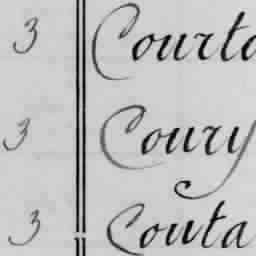 3 Courto
3 Coury
3 Couta